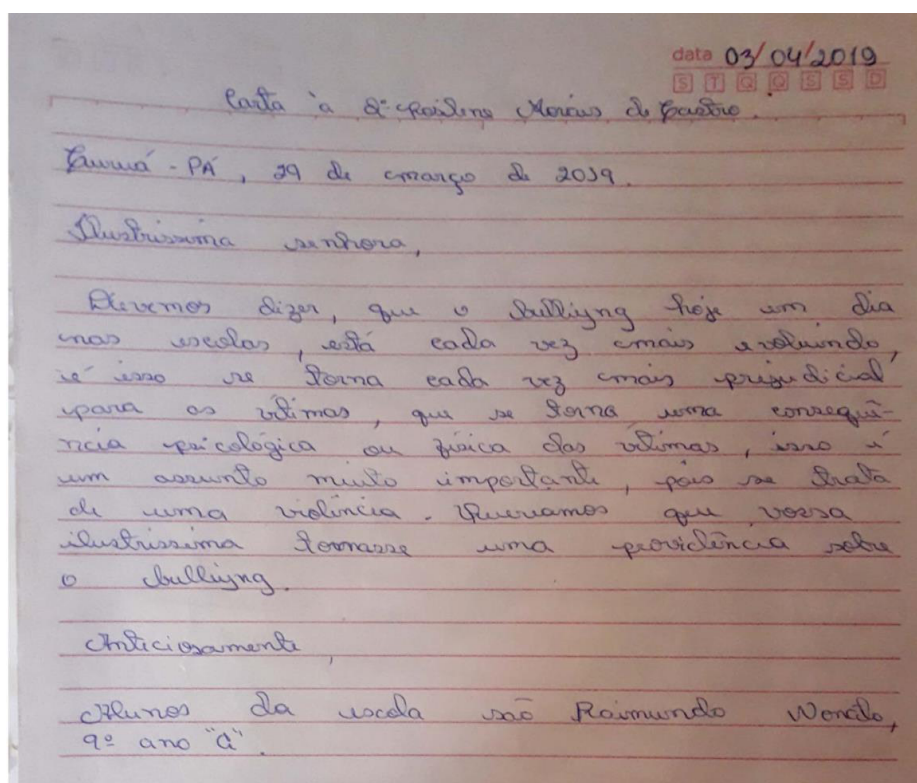 data 03/04/2019
S T Q Q S S D
Carta à de Castro.
Curuá - PA, 29 de março de 2019.
Ilustrissima senhora,
Devemos dizer, que o bulliyng hoje em dia
nas escolas, está cada vez mais evoluindo,
é isso se torna cada vez mais prejudicial
para as vítimas, que se torna uma consequê-
ncia psicológica ou física das vítimas, isso é
um assunto muito importante, pois se trata
de uma violência. Queriamos que vossa
ilustrissima tomasse uma providência sobre
o bulliyng.
Anticiosamente,
Alunos da escola são Raimundo Nonato,
9º ano "a".